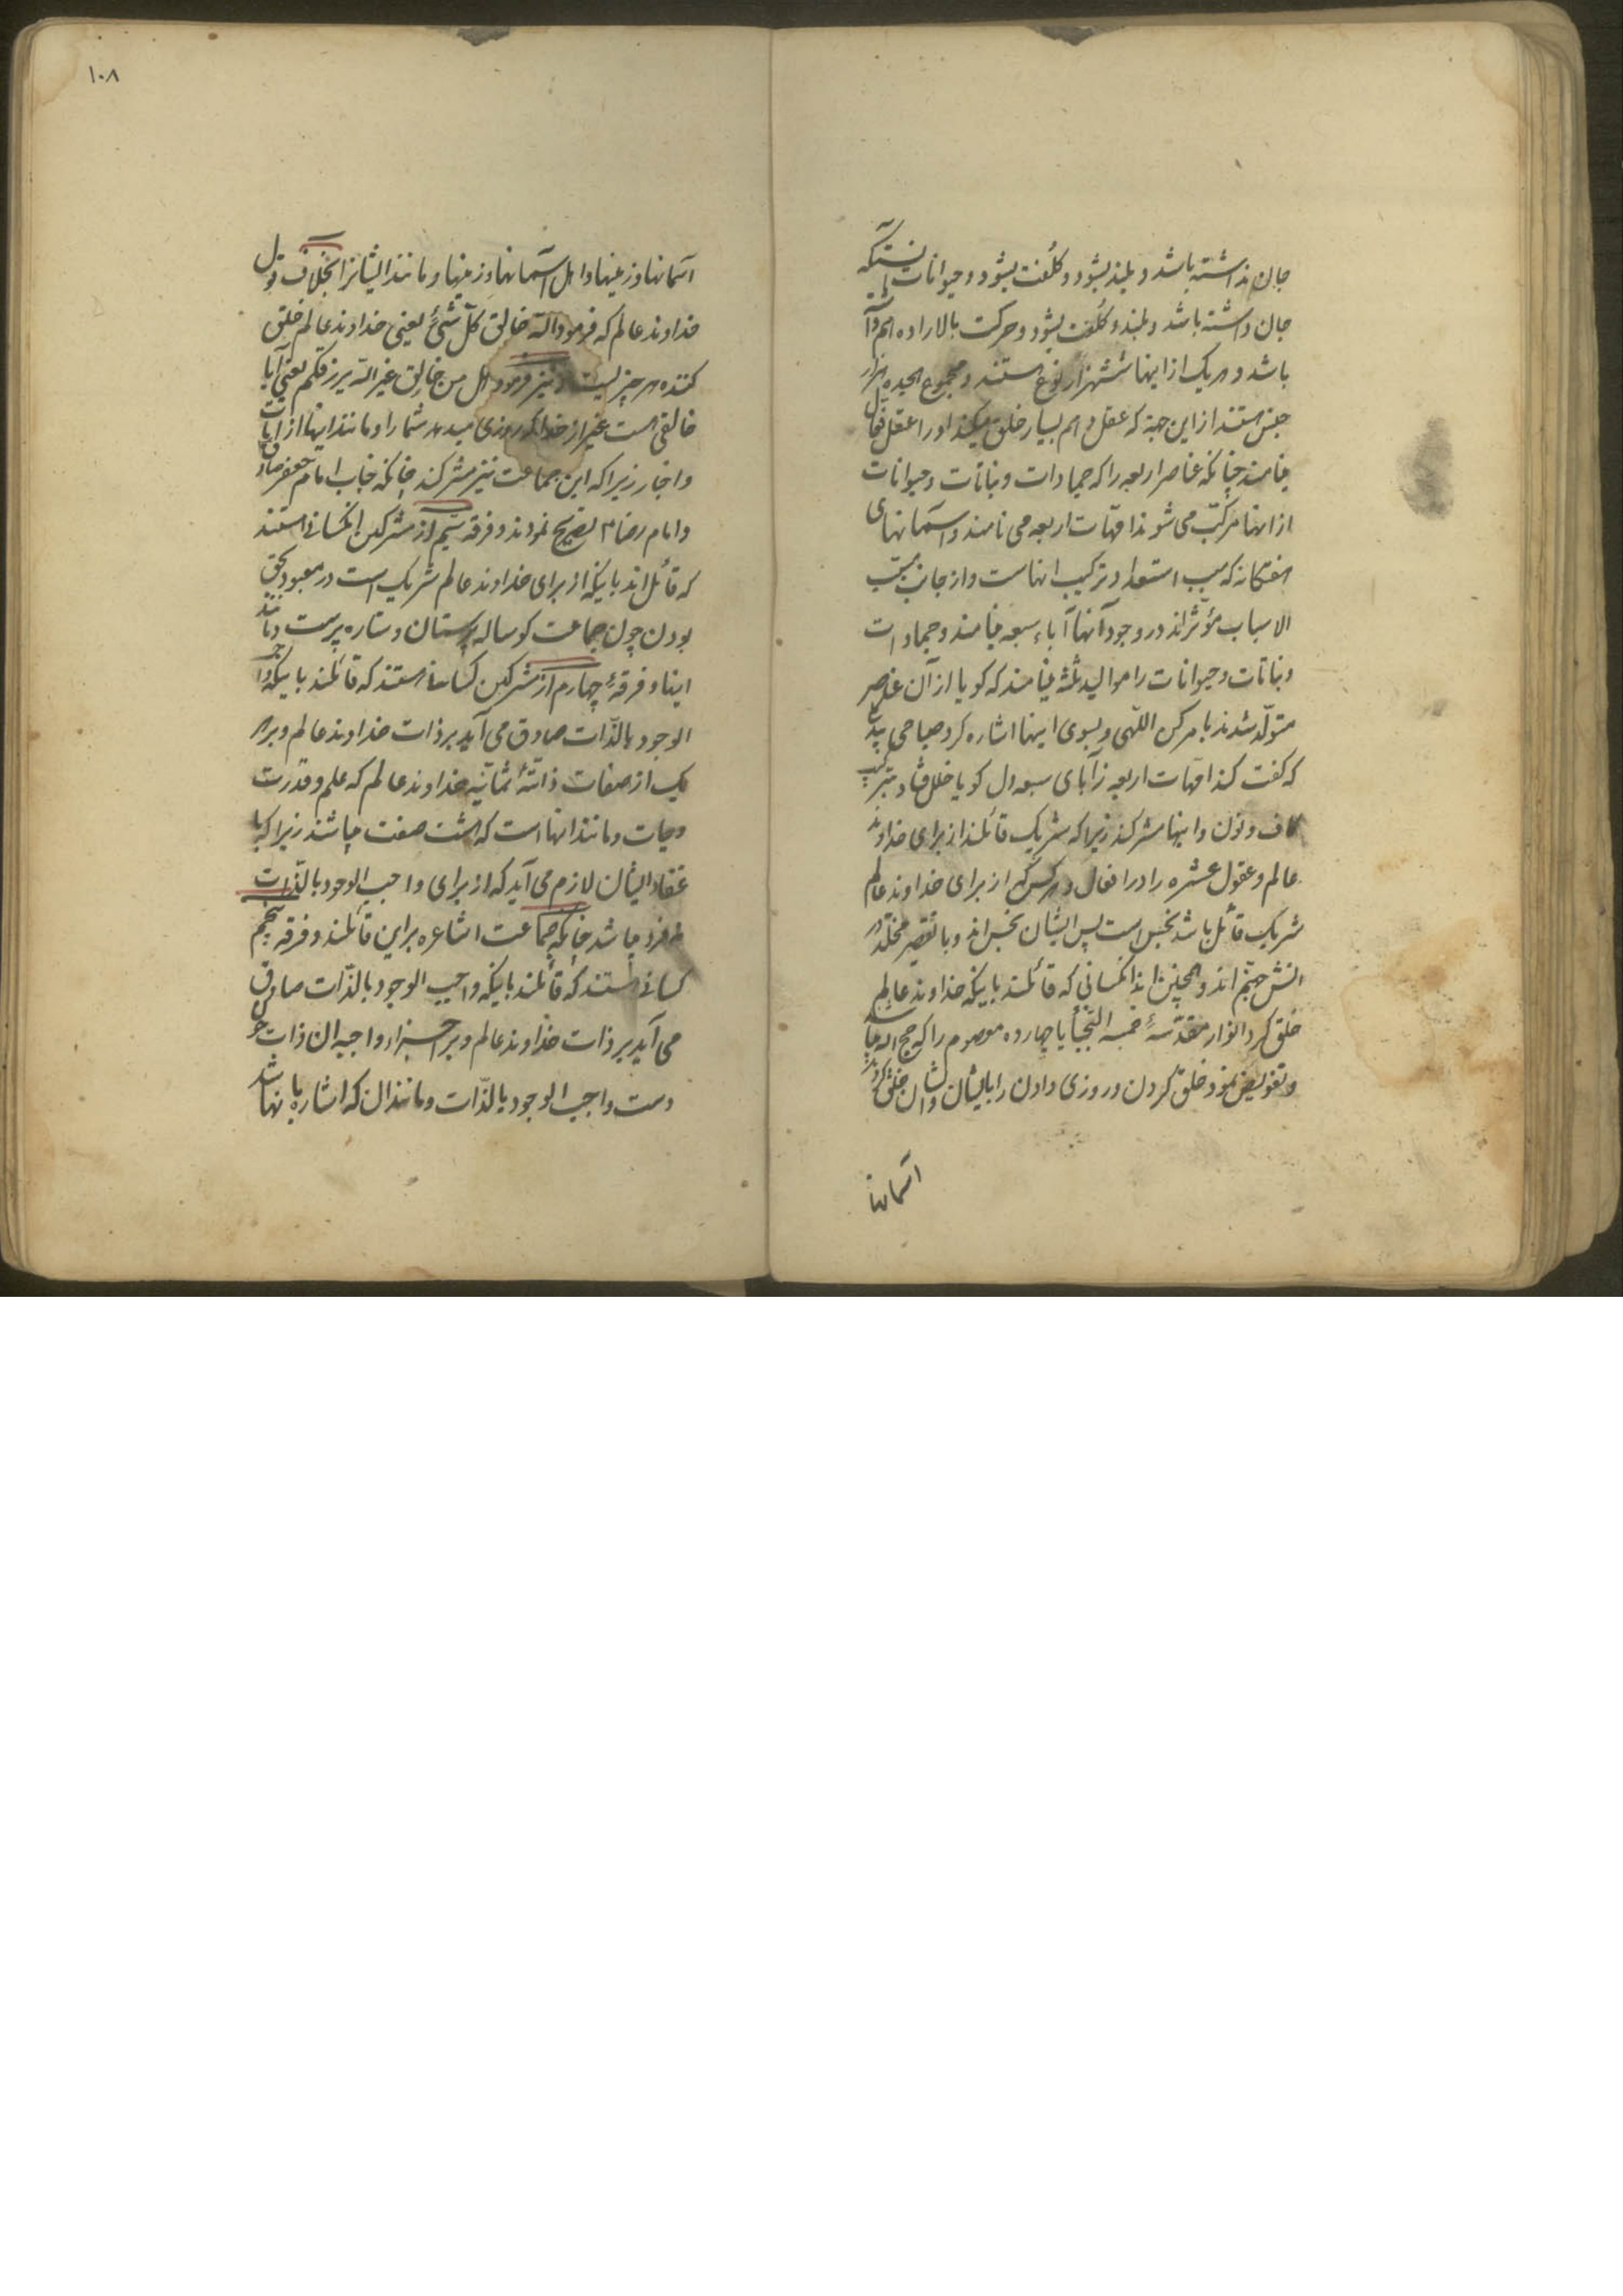 جان نداشته باشد و بلند بشود و کلفت بشود و حیوانات آنستکه
جان داشته باشد و بلند و کلفت بشود و حرکت بالاراده هم او را
باشد و هر یک از اینها ششهزار نوع هستند و مجموع هیجده هزار
جنس هستند از این جهة که عقل دهم بسیار خلق میکند او را عقل فعّال
مینامند چنانکه عناصر اربعه را که جمادات و نباتات و حیوانات
از انها مرکّب می شوند امّهات اربعه می نامند و آسمانهای
هفتگانه که سبب استعداد ترکیب انهاست و از جانب مسبّب
الاسباب مؤثّراند در وجود آنها آباء سبعه مینامند و جمادات
و نباتات و حیوانات را موالید ثلثه مینامند که کویا از آن عناصر
متولّد شدند بامر کن اللّهی و بسوی اینها اشاره کرد صباحی
که گفت کند امّهات اربعه زآبای سبعه دل کویا خلل فتاد بترکیب
کاف و نون و اینها مشرکند زیرا که شریک قائلند از برای خداوند
عالم و عقول عشره را در افعال و هر کس که از برای خداوند عالم
شریک قائل باشد نجس است پس ایشان نجس اند و با تقصیر مخلّد در
اتش جهنّم اند و همچنین اند انکسانی که قائلند باینکه خداوند عالم
خلق کرد انوار مقدّسهٔ خمسه النّجبأ یا چهارده معصوم را که حجج اله میباشند
و تفویض نمود خلق کردن و روزی دادن را بایشان و ایشان خلق کردند
اسمانها
۱۰۸
آسمانها و زمینها و اهل آسمانها و زمینها و مانند ایشانرا بخلاف قول
خداوند عالم که فرمود الله خالق کلّ شئ یعنی خداوند عالم خلق
کننده هر چیزیست و نیز فرمود هل من خالق غیر الله یرزقکم یعنی آیا
خالقی هست غیر از خدا که روزی میدهد شما را و مانند اینها از آیات
و اخبار زیرا که این جماعت نیز مشرکند چنانکه جناب امام جعفر صادق
و امام رضا ۴ تصریح نمودند و فرقه سیّم از مشرکین انکسانی هستند
که قائل اند باینکه از برای خداوند عالم شریک است در معبود بحق
بودن چون جماعت کوساله پرستان و ستاره پرست و مانند
اینها و فرقهٔ چهارم از مشرکین کسانی هستند که قائلند باینکه واجب
الوجود بالذّات صادق می آید بر ذات خداوند عالم و بر هر
یک از صفات ذاتیّهٔ ثمانیّه خداوند عالم که علم و قدرت
و حیات و مانند انها است که هشت صفت میباشند زیرا که با
عتقاد ایشان لازم می آید که از برای واجب الوجود بالذّات
نه فرد میباشد چنانکه جماعت اشاعره بر این قائلند و فرقه پنجم
کسانی هستند که قائلند باینکه واجب الوجود بالذّات صادق
می آید بر ذات خداوند عالم و بر اجزاء واجبه ان ذات چون
دست واجب الوجود بالذّات و مانند ان که اشاره بانها شد